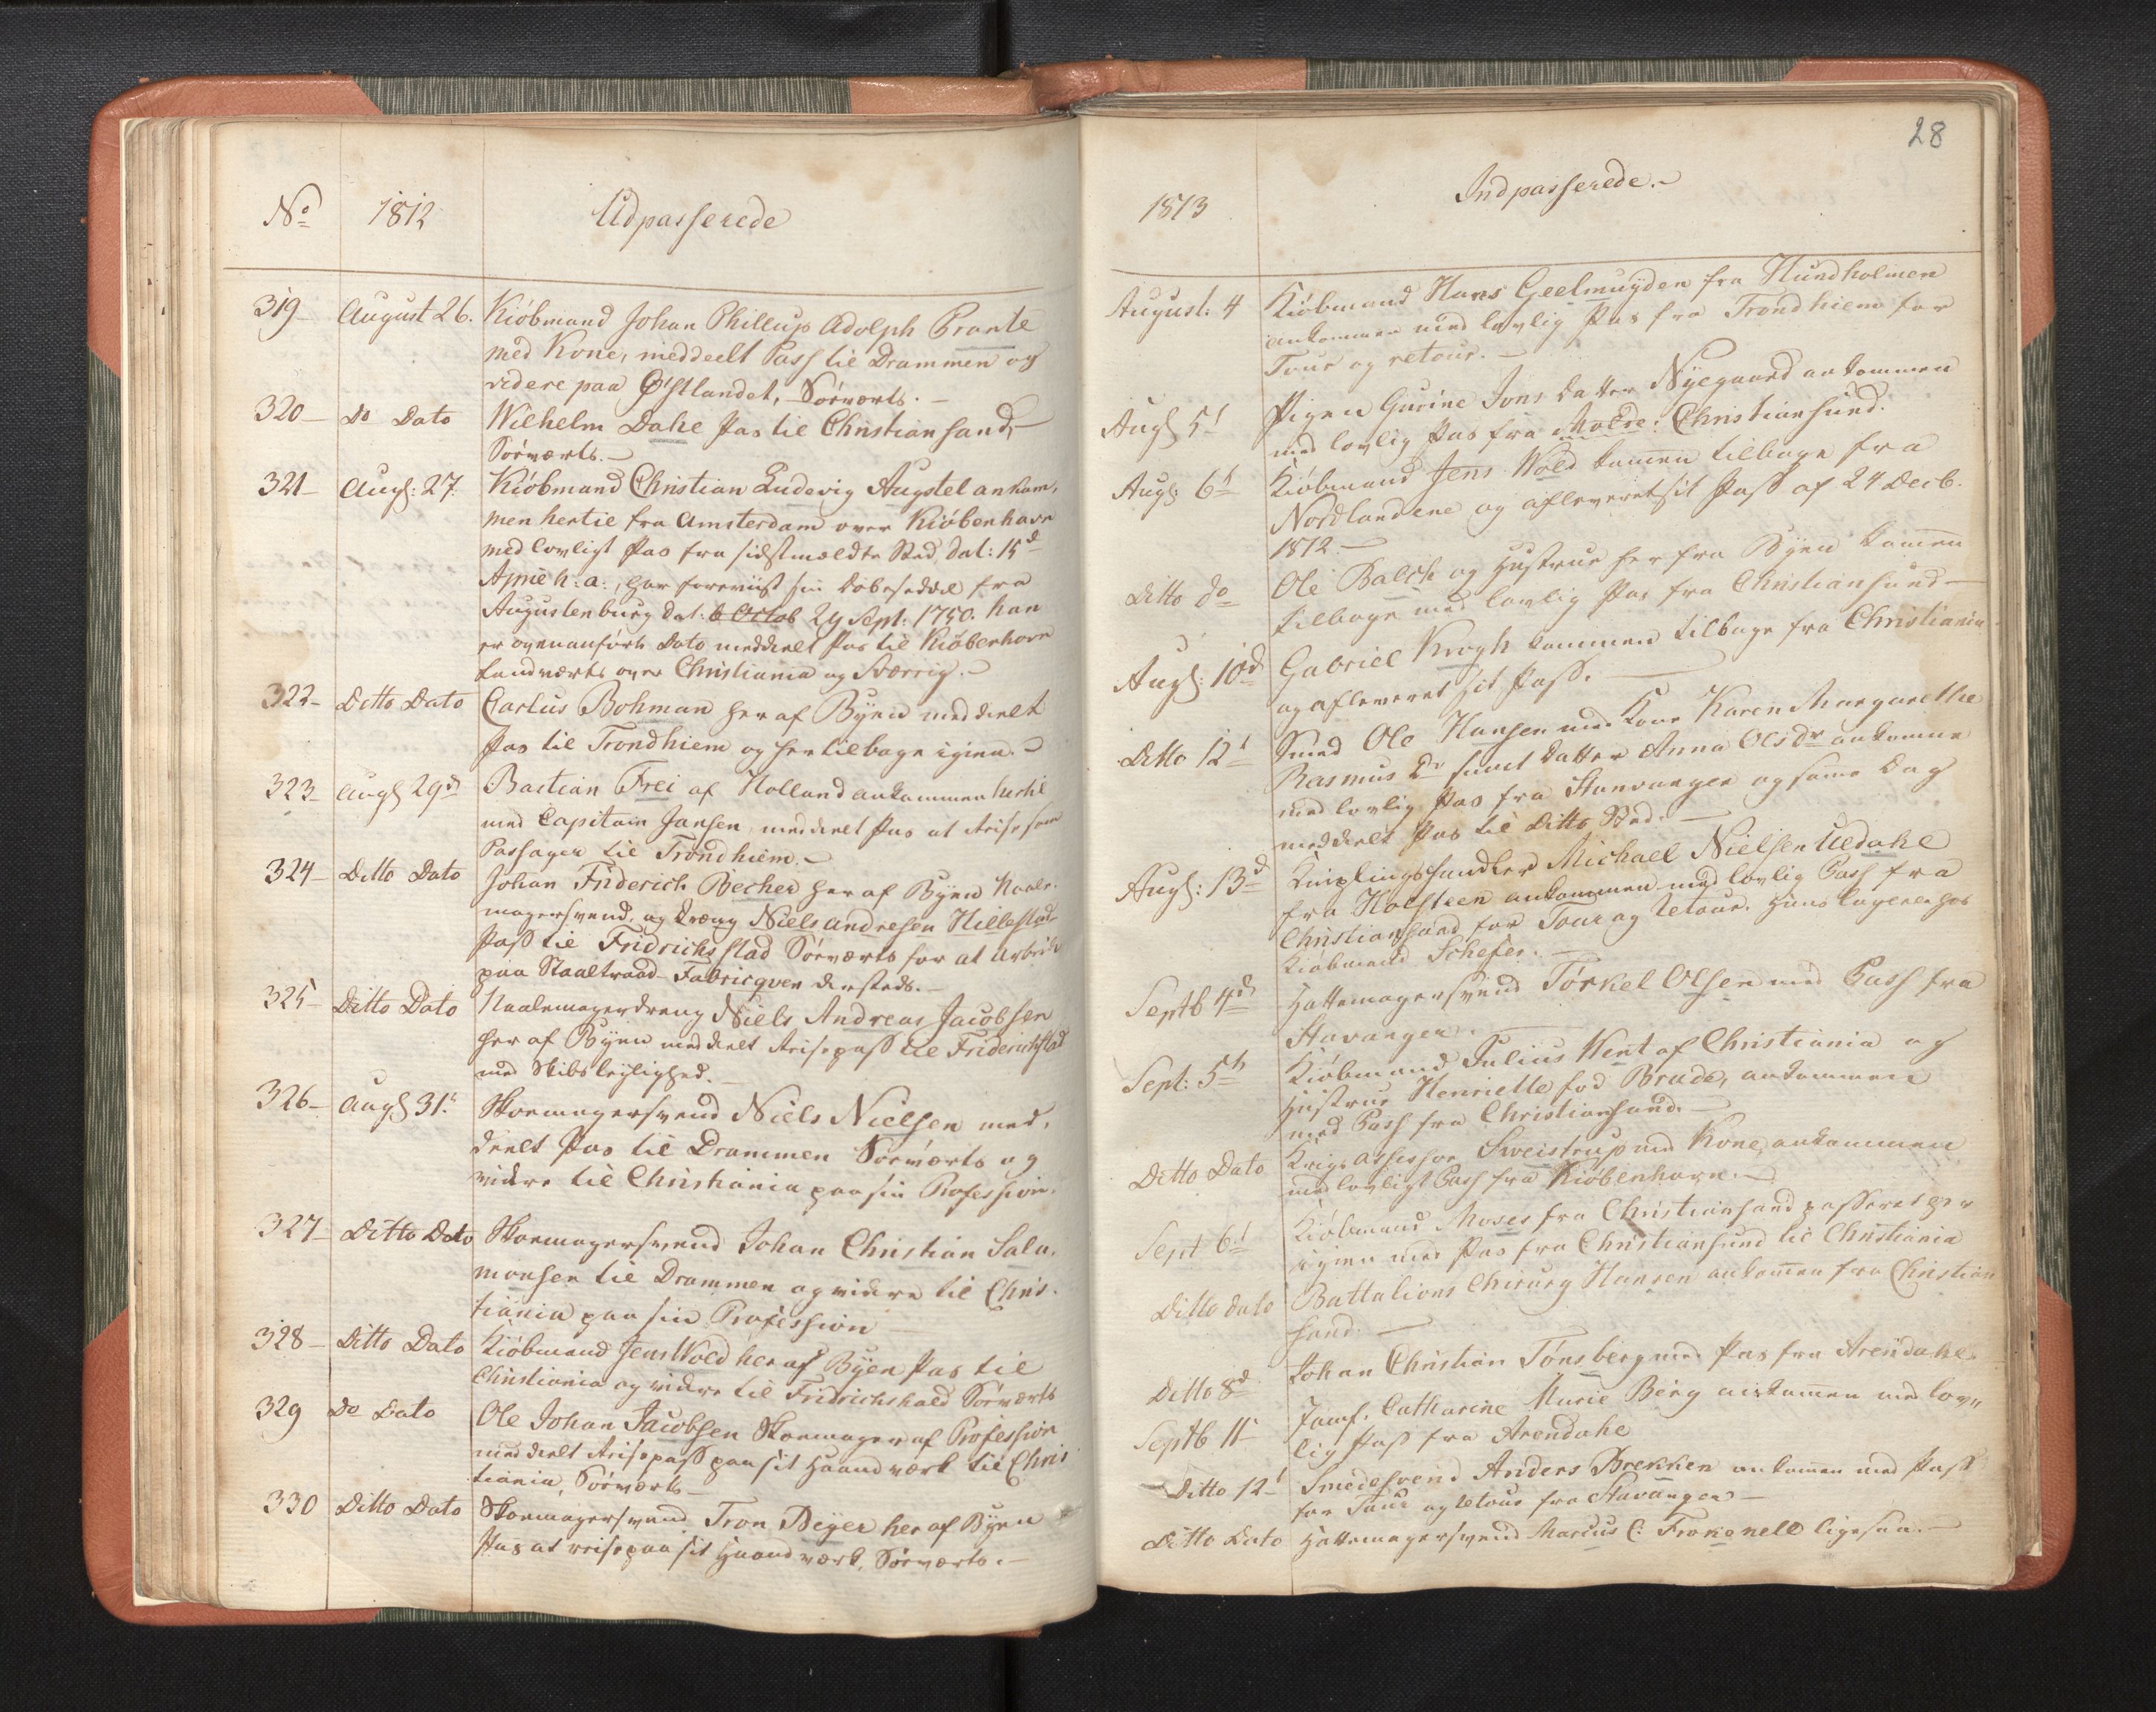 No 1812 Udpasserede
319 August 26. Kiöbmand Johan Phillup Adolph Brante
med Kone, meddeelt Pass til Drammen og
videre paa Østlandet, Sörværts. —
320 — Do Dato Wilhelm Dahl Pas til Christiansand,
Sörværts. —
321 — Aug: 27. Kiöbmand Christian Ludevig Augstel ankom,
men hertil fra Amsterdam over Kiöbenhavn
med lovligt Pas fra sidstmeldte Sted, dat: 15d
April h: a:, har foreviist sin Döbeseddel fra
Augustenburg dat: 6 Octob 29 Sept: 1750. han
er ovenanförte Dato meddeelt Pas til Kiöbenhavn
Landværts over Christiania og Sverrig. —
322 — Ditto Dato Carlus Bohman her af Byen meddeelt
Pas til Trondhiem og her tilbage igien. —
323 — Aug 29d Bastian Frei af Holland ankommen hertil
med Capitain Jansen, meddeelt Pas at reise som
Passager til Trondhiem. —
324 — Ditto Dato Johan Friderich Becher her af Byen Naale-
magersvend, og Dreng Niels Andresen Hillestad
Pass til Fridrichsstad Sörværts for at arbeide
paa Staaltraad-Fabricqven dersteds. —
325 — Ditto Dato Naalemagerdreng Niels Andreas Jacobsen
her af Byen meddeelt Reisepass til Friderichstad
med Skibsleylighed. —
326 — Aug 31. Skomagersvend Niels Nielsen med,
deelt Pas til Drammen Sörværts og
videre til Christiania paa sin Profession.
327 — Ditto Dato Skomagersvend Johan Christian Salo,
monsen til Drammen og videre til Chris-
tiania paa sin Profession —
328 — Ditto Dato Kiöbmand Jens Wold her af Byen Pas til
Christiania og videre til Fridrichshald Sörværts
329 Do Dato Ole Johan Jacobsen Skomager af Profession
meddeelt Reisepass paa sit Haandværk til Chris
tiania, Sörværts —
330 Ditto Dato Skomagersvend Tron Beyer her af Byen
Pas at reise paa sit Haandværk, Sörværts. —
28
1813 Indpasserede. —
August: 4 Kiöbmand Hans Geelmuyden fra Hundholmen
ankommen med lovlig Pas fra Trondhiem for
Tour og retour. —
Aug 5t Pigen Gurine Jons Datter Nyegaard ankommen
med lovlig Pas fra Molde. Christiansund.
Aug: 6t Kiöbmand Jens Wold kommen tilbage fra
Nordlandene og afleveret sit Pass af 24 Decb.
1812. —
Ditto do Ole Balch og Hustrue her fra Byen kommen
tilbage med lovlig Pas fra Christiansund —
Aug: 10d Gabriel Krogh kommen tilbage fra Christiania
og afleveret sit Pass. —
Ditto 12t Smed Ole Hansen med Kone Karen Margarethe
Rasmus Dr samt Datter Anna Olsdr ankomne
med lovlig Pas fra Stavanger og samme Dag
meddeelt Pas til Ditto Sted. —
Aug: 13d Kniplingshandler Michael Nielsen Uldahl
fra Holsteen ankommen med lovlig Pass fra
Christiansand for Tour og retour. Hans Logere hos
Kiöbmand Schefer. —
Septb 4d Hattemagersvend Törkel Olsen med Pass fra
Stavanger. —
Sept: 5t Kiöbmand Julius Kent af Christiania og
Hustrue Henriette fod Brude, ankommen
med Pass fra Christiansand. —
Ditto Dato Krigs Assessor Sweistrup med Kone, ankommen
med lovligt Pass fra Kiöbenhavn. —
Sept 6t Kiöbmand Moses fra Christiansand passeret her
igien med Pas fra Christiansund til Christiania
Ditto dato Battalions Chirurg Hansen ankommen fra Christian
sand. —
Ditto 8d Johan Christian Tönsberg med Pas fra Arendahl.
Septb 11t Jomf. Catharine Marie Berg ankommen med lov„
lig Pass fra Arendahl
Ditto 12t Smedesvend Anders Brekken ankommen med Pass
for Tour og retour fra Stavanger —
Ditto Dato Hattemagersvend Marius C: ligesaa. —